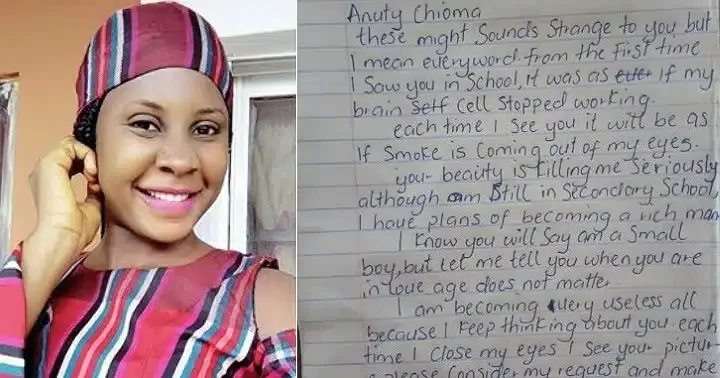 Anuty Chioma
these might Sounds Strange to you, but
I mean everyword. from the first time
I Saw you in School, it was as if my
brain cell stopped working.
each time I See you it will be as
If Smoke is Coming out of my eyes.
your beaity is killing me Seriously
although am Still in Secondary School,
I have plans of becoming a rich man
I know you will Say am a Small
boy, but let me tell you when you are
in love age does not matter.
I am becoming very useless all
because I Keep thinking about you each
time I close my eyes I See your pictur
please Consider my request and make